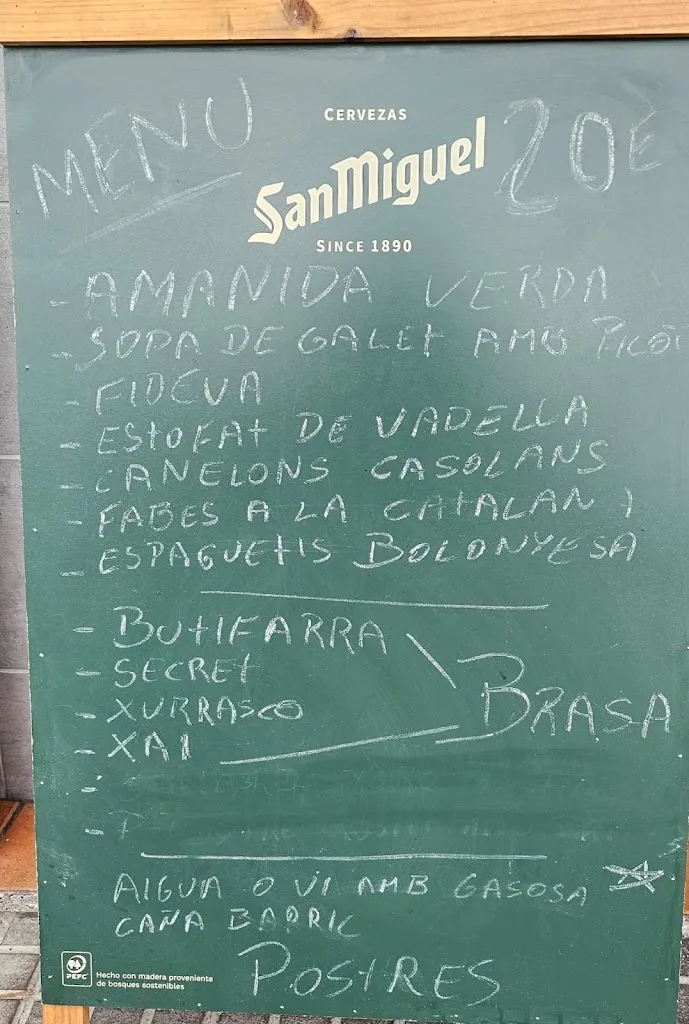 CERVEZAS
MENU
San Miguel
20€
SINCE 1890
- AMANIDA VERDA
- SOPA DE GALET AMB PICO
- FIDEVA
- ESTOFAT DE VADELLA
- CANELONS CASOLANS
- FABES A LA CATALAN
- ESPAGUETIS BOLONYESA
- BUTIFARRA
- SECRET
- XURRASCO
- XAI
BRASA
AIGUA O VI AMB GASOSA
CAÑA BARRIC
POSTRES
PEFC
Hecho con madera proveniente
de bosques sostenibles